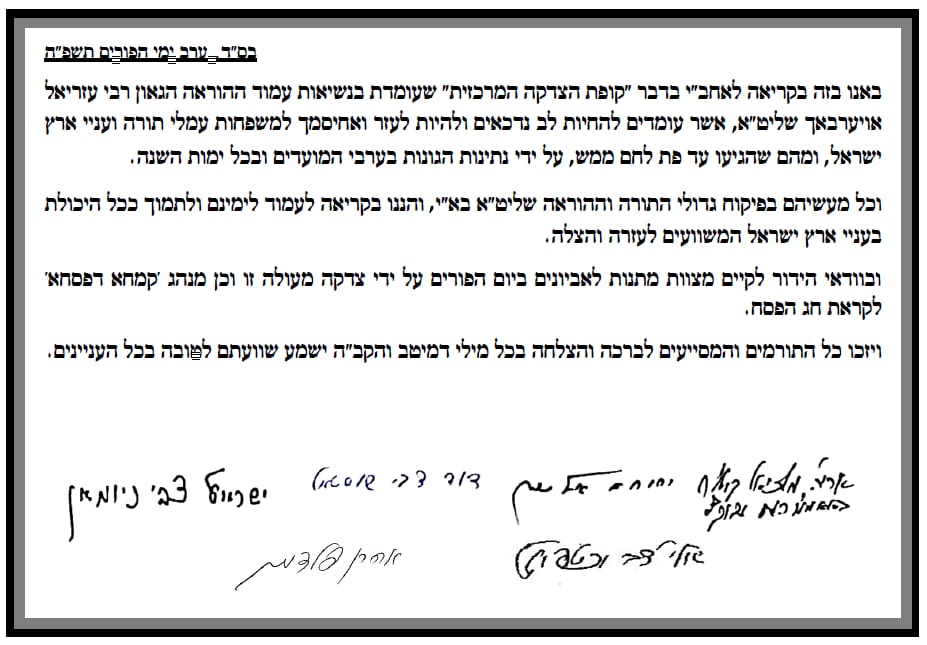 בס"ד ערב ימי הפורים תשפ"ה
באנו בזה בקריאה לאחב"י בדבר "קופת הצדקה המרכזית" שעומדת בנשיאות עמוד ההוראה הגאון רבי עזריאל
אויערבאך שליט"א, אשר עומדים להחיות לב נדכאים ולהיות לעזר ואחיסמך למשפחות עמלי תורה ועניי ארץ
ישראל, ומהם שהגיעו עד פת לחם ממש, על ידי נתינות הגונות בערבי המועדים ובכל ימות השנה.
וכל מעשיהם בפיקוח גדולי התורה וההוראה שליט"א בא"י, והננו בקריאה לעמוד לימינם ולתמוך ככל היכולת
בעניי ארץ ישראל המשוועים לעזרה והצלה.
ובוודאי הידור לקיים מצוות מתנות לאביונים ביום הפורים על ידי צדקה מעולה זו וכן מנהג 'קמחא דפסחא'
לקראת חג הפסח.
ויזכו כל התורמים והמסייעים לברכה והצלחה בכל מילי דמיטב והקב"ה ישמע שוועתם לטובה בכל העניינים.
דוד צבי
ישראל צבי ניומאן
אהרן פלדמן